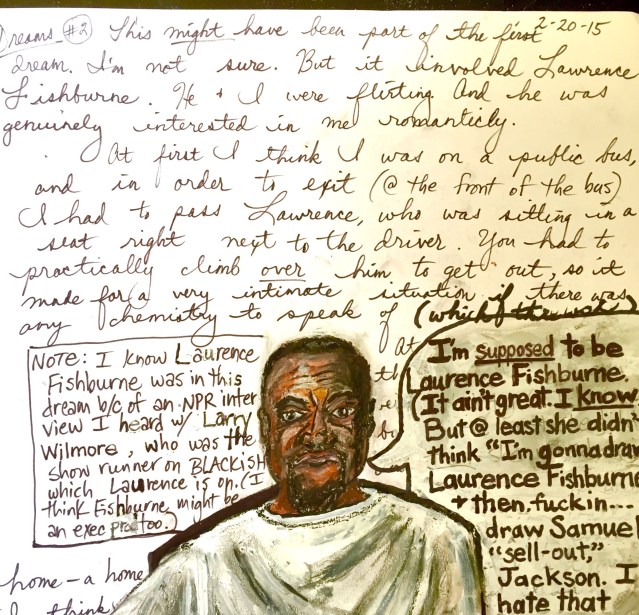 Dreams #2 This might have been part of the first 2-20-15
dream. I'm not sure. But it involved Lawrence
Fishburne. He + I were flirting and he was
genuinely interested in me romanticly.
At first I think I was on a public bus,
and in order to exit (@ the front of the bus)
I had to pass Lawrence, who was sitting in a
seat right next to the driver. You had to
practically climb over him to get out, so it
made for a very intimate situation if there was
any chemistry to speak of (which
At
th
NOTE: I know Laurence
Fishburne was in this
dream b/c of an NPR inter
view I heard w/ Larry
Wilmore, who was the
show runner on BLACKISH
which Laurence is on. (I
think Fishburne might be
an exec too.)
I'm supposed to be
Laurence Fishburne.
(It ain't great. I know.
But @ least she didn't
think "I'm gonna draw
Laurence Fishburne
+ then, fuckin...
draw Samuel
"sell-out,"
Jackson. I
hate that
home – a home
I think